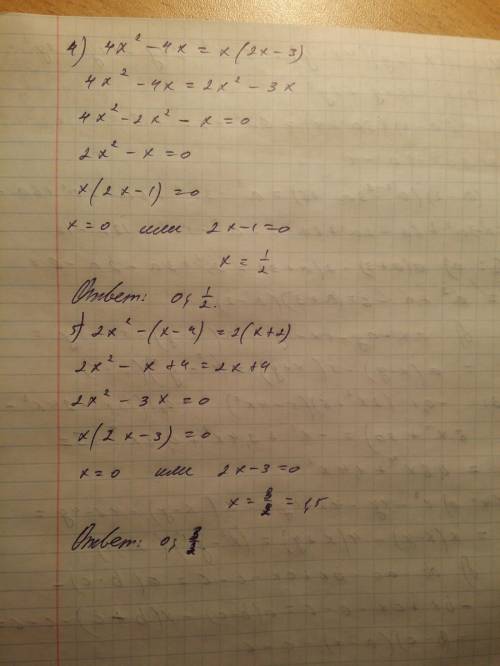 4) 4x² - 4x = x(2x - 3)
4x² - 4x = 2x² - 3x
4x² - 2x² - x = 0
2x² - x = 0
x(2x - 1) = 0
x = 0 или 2x - 1 = 0
x = 1/2
Ответ: 0; 1/2.
5) 2x² - (x - 4) = 2(x + 2)
2x² - x + 4 = 2x + 4
2x² - 3x = 0
x(2x - 3) = 0
x = 0 или 2x - 3 = 0
x = 3/2 = 1,5
Ответ: 0;